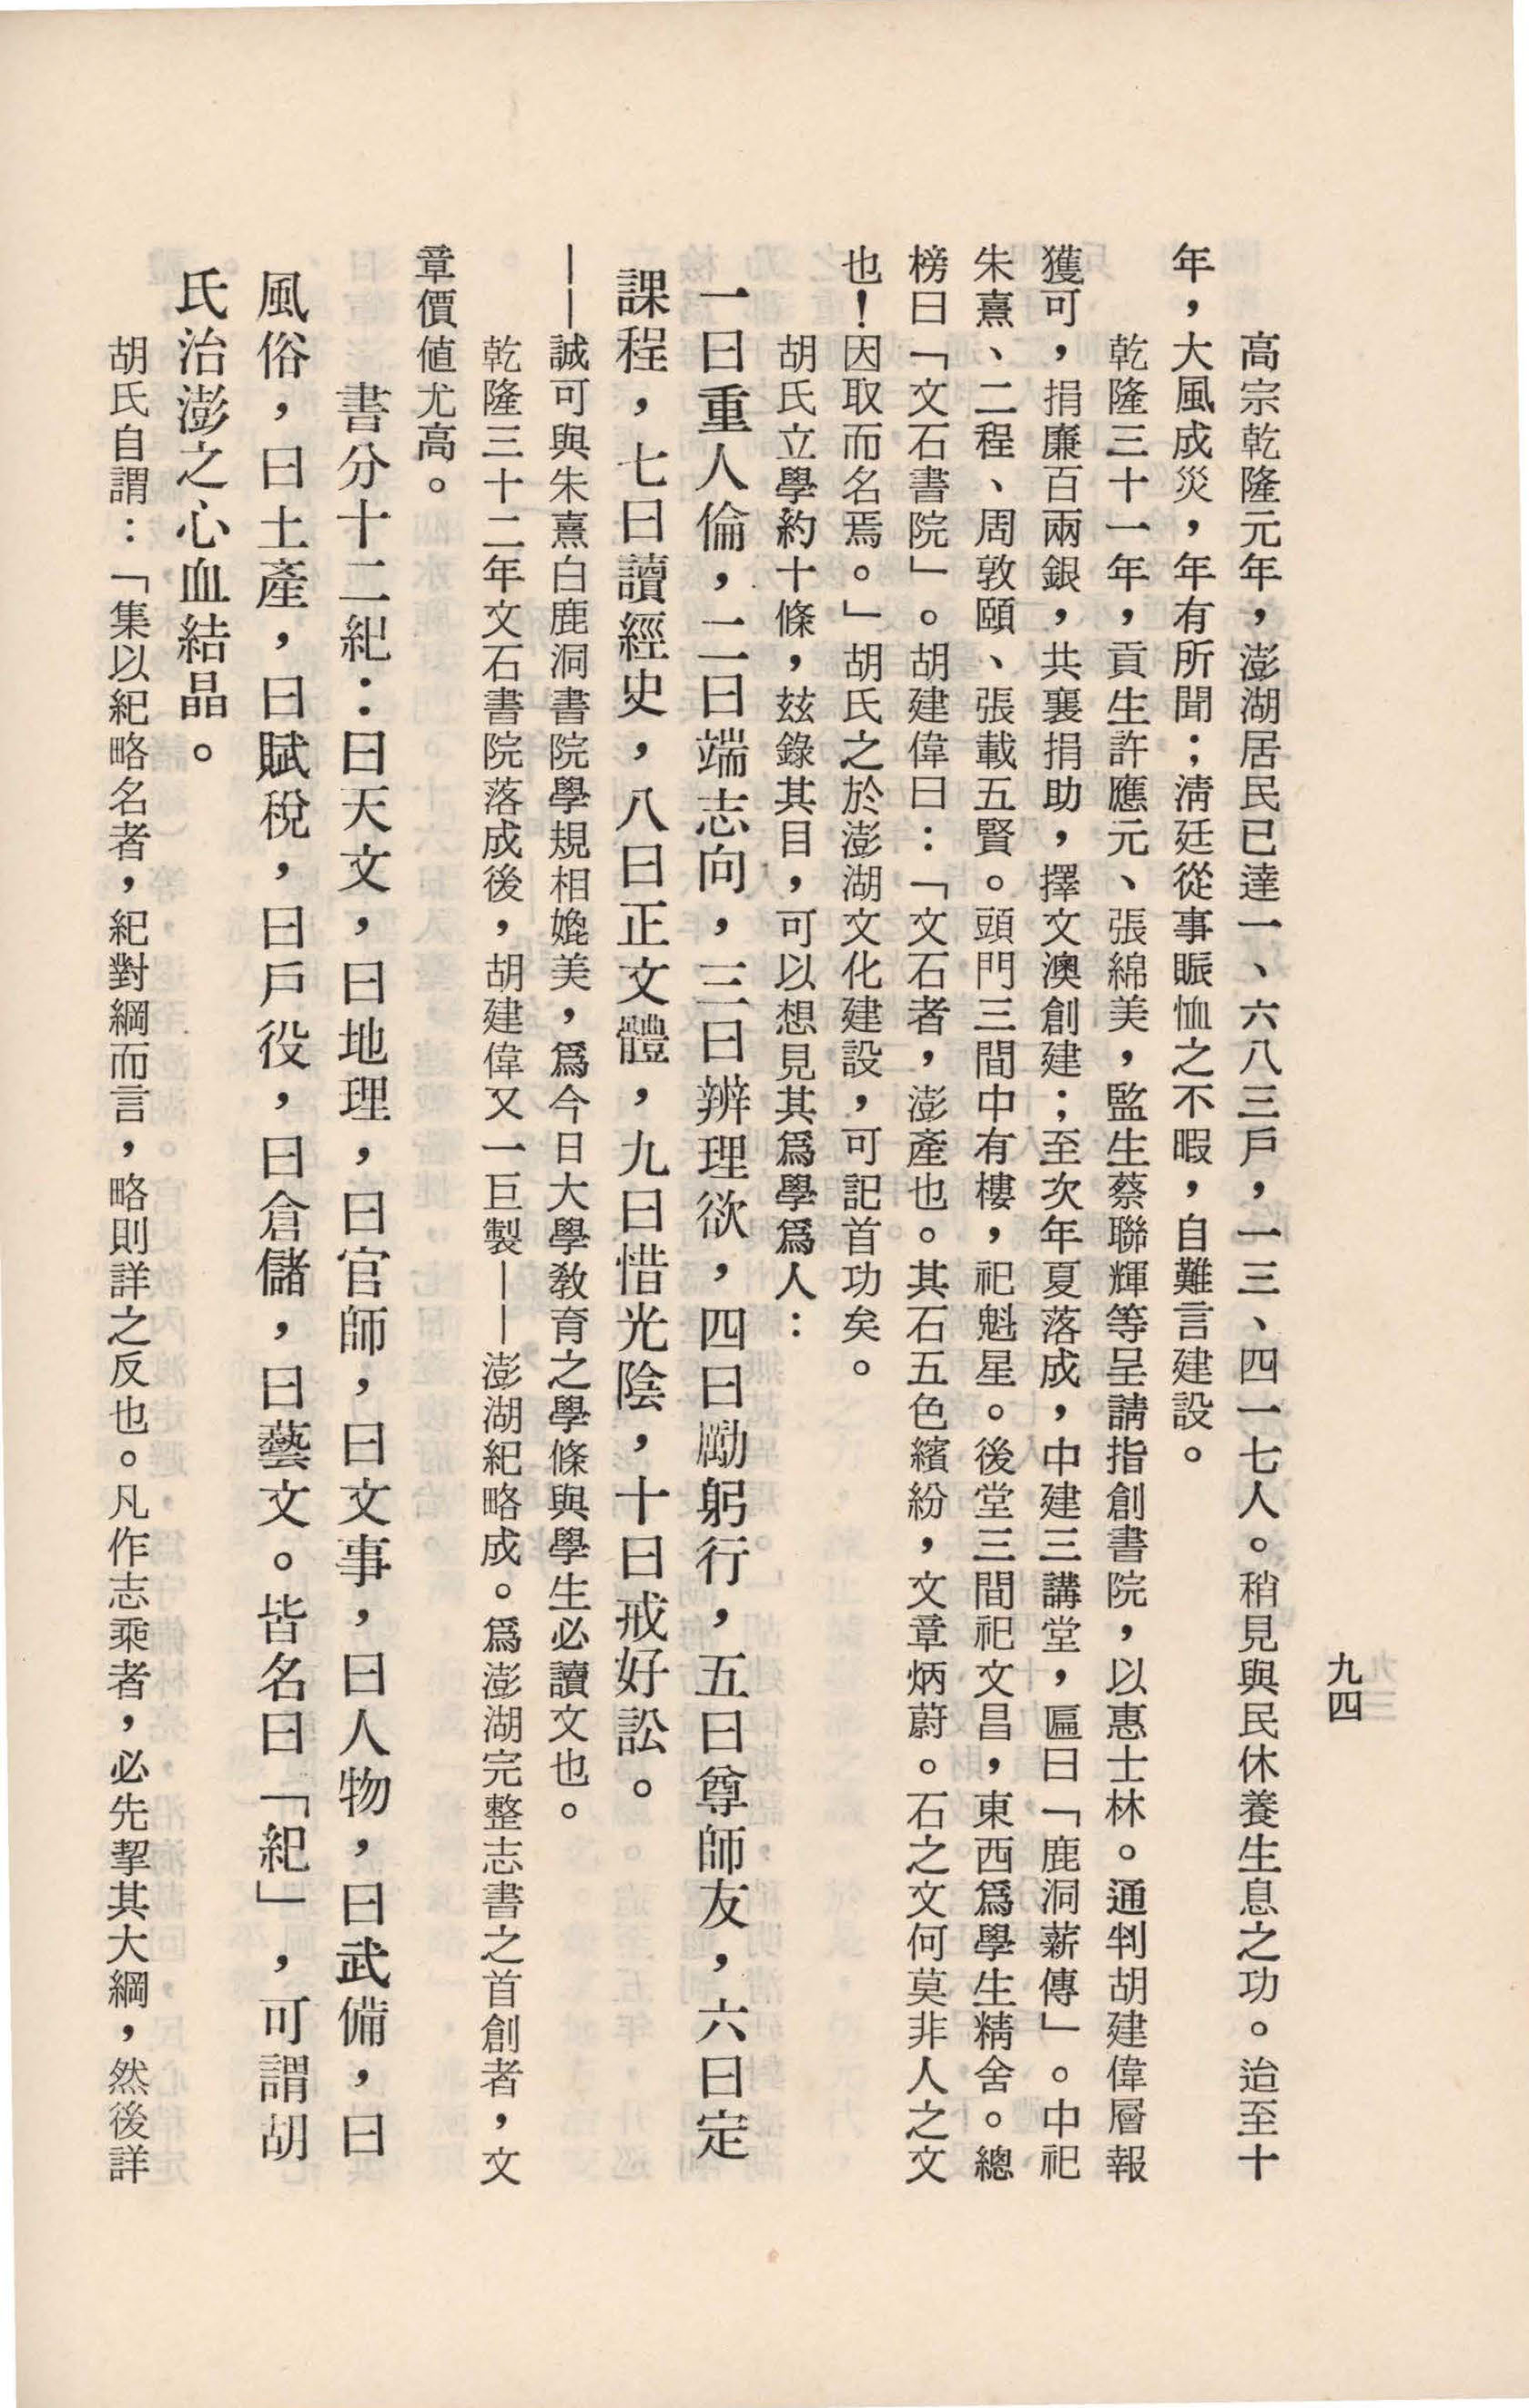 九四
高宗乾隆元年，澎湖居民已達一、六八三戶，一三、四一七人。稍見與民休養生息之功。迨至十
年，大風成災，年有所聞；淸廷從事賑恤之不暇，自難言建設。
乾隆三十一年，貢生許應元、張綿美，監生蔡聯輝等呈請指創書院，以惠士林。通判胡建偉層報
獲可，捐廉百兩銀，共襄捐助，擇文澳創建；至次年夏落成，中建三講堂，匾曰「鹿洞薪傳」。中祀
朱熹、二程、周敦頤、張載五賢。頭門三間中有樓，祀魁星。後堂三間祀文昌，東西爲學生精舍。總
榜曰「文石書院」。胡建偉曰：「文石者，澎產也。其石五色繽紛，文章炳蔚。石之文何莫非人之文
也！因取而名焉。」胡氏之於澎湖文化建設，可記首功矣。
胡氏立學約十條，玆錄其目，可以想見其爲學爲人：
一曰重人倫，二曰端志向，三曰辨理欲，四曰勵躬行，五曰尊師友，六曰定
課程，七曰讀經史，八曰正文體，九曰惜光陰，十曰戒好訟。
——誠可與朱熹白鹿洞書院學規相媲美，爲今日大學教育之學條與學生必讀文也。
乾隆三十二年文石書院落成後，胡建偉又一巨製——澎湖紀略成。爲澎湖完整志書之首創者，文
章價値尤高。
書分十二紀：曰天文，曰地理，曰官師，曰文事，曰人物，曰武備，曰
風俗，曰土產，曰賦稅，曰戶役，曰倉儲，曰藝文。皆名曰「紀」，可謂胡
氏治澎之心血結晶。
胡氏自謂：「集以紀略名者，紀對綱而言，略則詳之反也。凡作志乘者，必先挈其大綱，然後詳